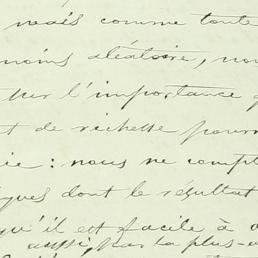 mais comme toute
moins aléatoire, nou
sur l'importance q
t de richesse pourr
ie : nous ne compt
ques dont le résultat
qu'il est facile à
aussi, par la plus-v